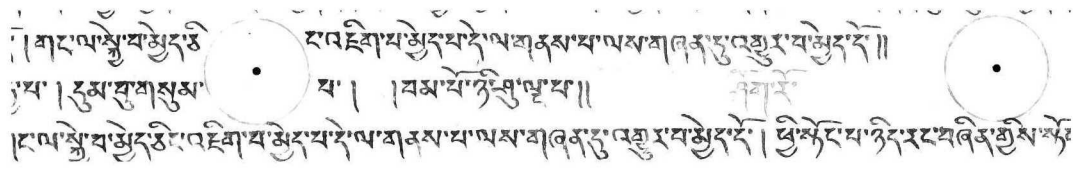 ། གང་ལ་སྐྱེ་བ་མྱེད་ཅི ང་འཇིག་པ་མྱེད་པ་དེ་ལ་གནས་པ་ལས་གཞན་དུ་འགྱུར་བ་མྱེད་དོ༎
པ་ ། དུམ་བུ་གསུམ་ པ་ ། །བམ་པོ་ཉི་ཤུ་ལྔ་པ༎
།ང་ལ་སྐྱེ་བ་མྱེད་ཅིང་འཇིག་པ་མྱེད་པ་དེ་ལ་གནས་པ་ལས་གཞན་དུ་འགྱུར་བ་མྱེད་དོ་ ། ཕྱི་སྟོང་པ་ཉིད་རང་བཞིན་གྱིས་སྟོང